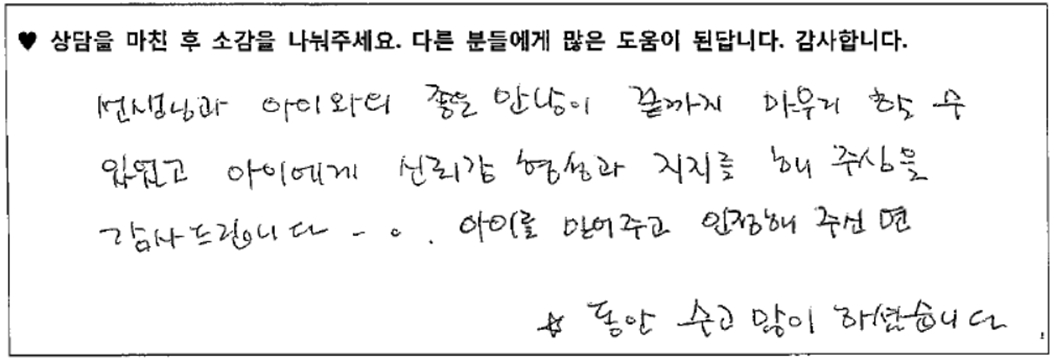 ♥ 상담을 마친 후 소감을 나눠주세요. 다른 분들에게 많은 도움이 된답니다. 감사합니다.
선생님과 아이와의 좋은 만남이 끝까지 마무리 할 수
있었고 아이에게 신뢰감 형성과 지지를 해 주심을
감사드립니다 - 。. 아이를 믿어주고 인정해 주신 면
☆ 동안 수고 많이 하셨습니다